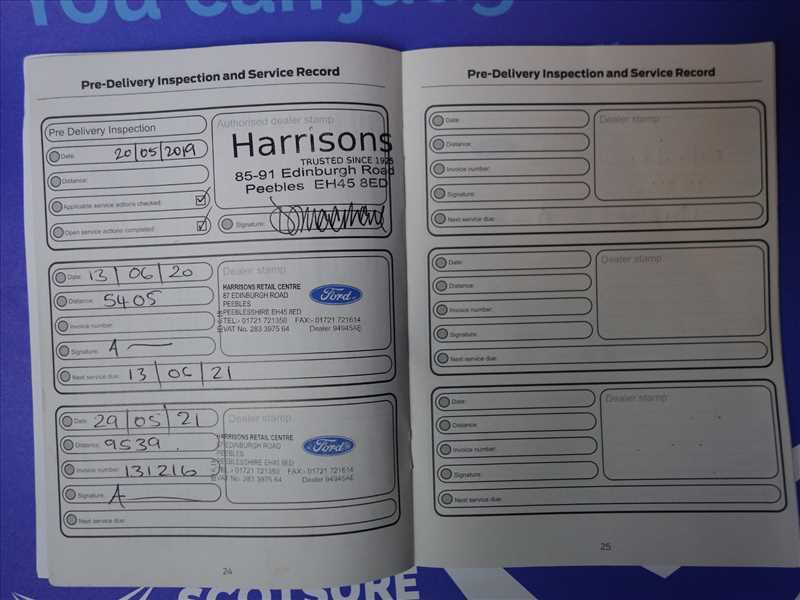 You can judg
Pre-Delivery Inspection and Service Record
Pre Delivery Inspection
Date: 20/05/2019
Distance:
Applicable service actions checked:
Open service actions completed:
Authorised dealer stamp
Harrisons
TRUSTED SINCE 1925
85-91 Edinburgh Road
Peebles EH45 8ED
Signature:
Date: 13/06/20
Distance: 5405
Invoice number:
Signature: A
Next service due: 13/06/21
Dealer stamp
HARRISONS RETAIL CENTRE
87 EDINBURGH ROAD
PEEBLES
PEEBLESSHIRE EH45 8ED
TEL:- 01721 721350 FAX:- 01721 721614
VAT No. 283 3975 64 Dealer 94945AE
Ford
Date: 29/05/21
Distance: 9539.
Invoice number: 131216
Signature: A
Next service due:
Dealer stamp
HARRISONS RETAIL CENTRE
87 EDINBURGH ROAD
PEEBLES
PEEBLESSHIRE EH45 8ED
TEL:- 01721 721350 FAX:- 01721 721614
VAT No. 283 3975 64 Dealer 94945AE
Ford
24
Pre-Delivery Inspection and Service Record
Date:
Distance:
Invoice number:
Signature:
Next service due:
Dealer stamp
Date:
Distance:
Invoice number:
Signature:
Next service due:
Dealer stamp
Date:
Distance:
Invoice number:
Signature:
Next service due:
Dealer stamp
25
SCOTSURE